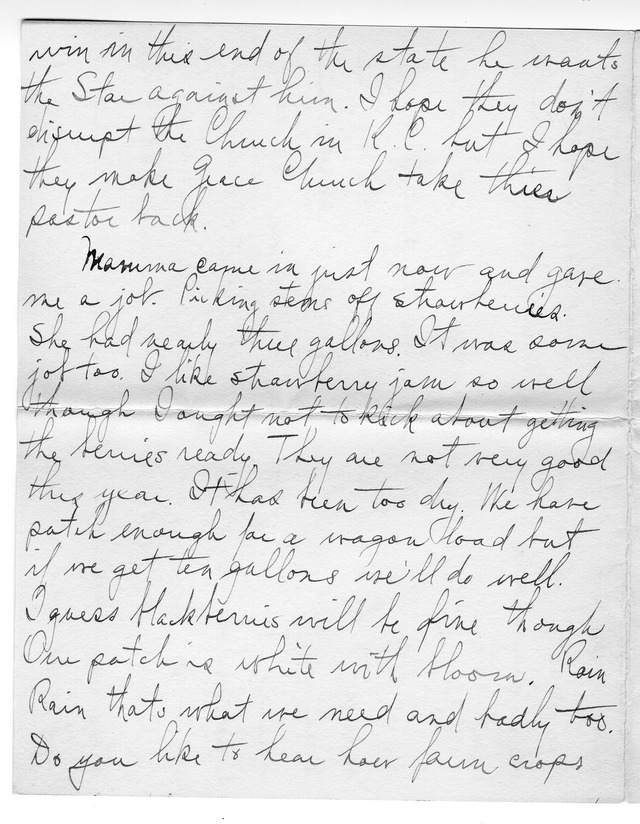 win in this end of the state he wants
the Star against him. I hope they don't
disrupt the Church in K.C. but I hope
they make Grace Church take thier
pastor back.
Mamma came in just now and gave
me a job. Picking stems off strawberries.
She had nearly three gallons. It was some
job too. I like strawberry jam so well
though I ought not to kick about getting
the berries ready. They are not very good
this year. It has been too dry. We have
patch enough for a wagon load but
if we get ten gallons we'll do well.
I guess blackberries will be fine though
Our patch is white with bloom. Rain
Rain thats what we need and badly too.
Do you like to hear how farm crops